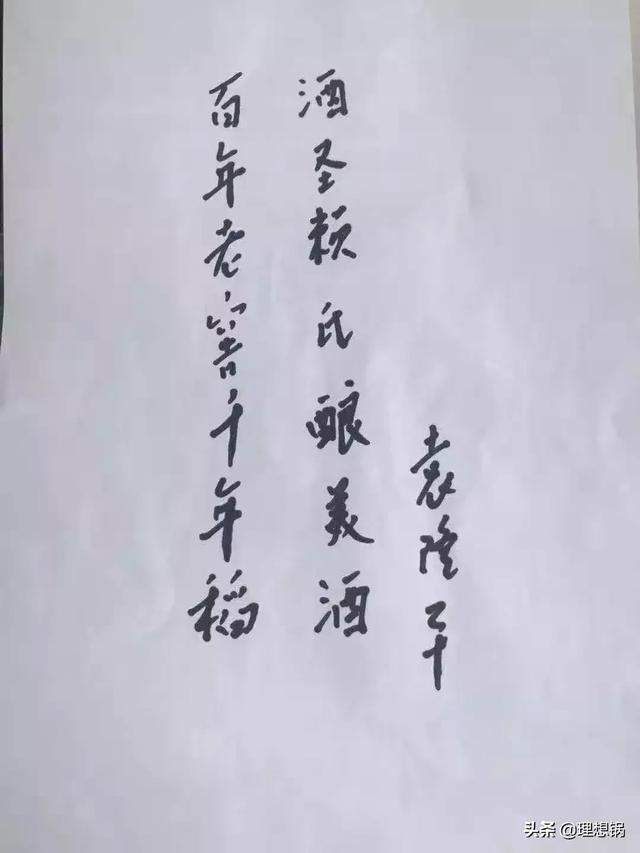 百年老窖千年稻
酒圣赖氏酿美酒
袁隆平
头条 @理想锅